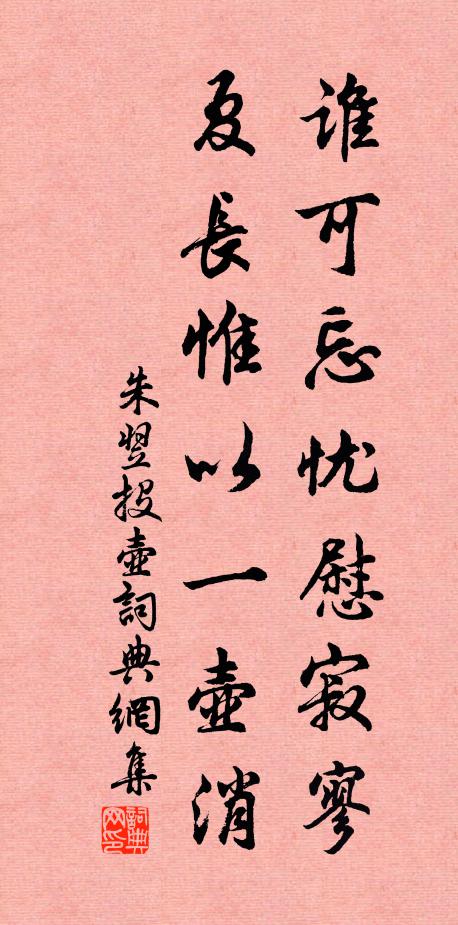 誰可忘忧慰寂寥
夏長惟以一壺消
朱翌投壺詞典網集
詞典网印